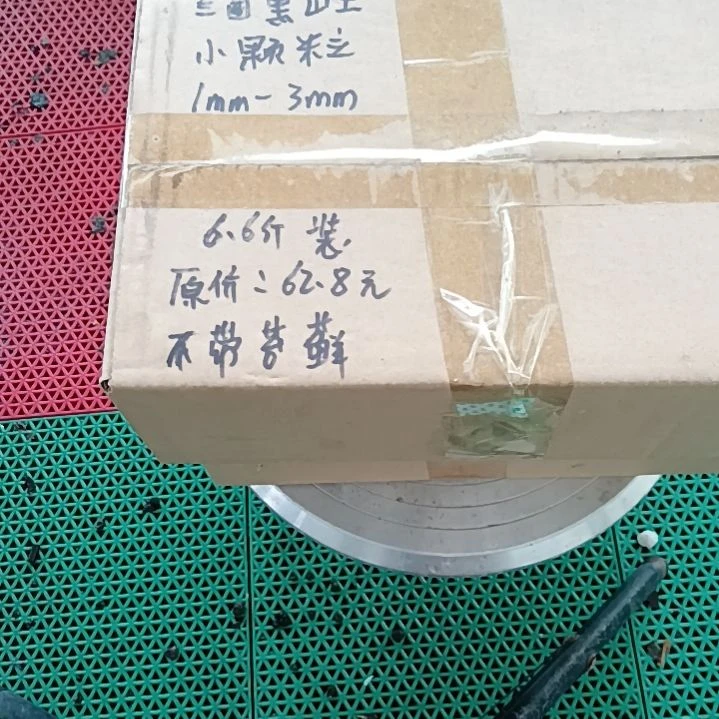 小颗粒
1mm-3mm
6.6斤装
原价:62.8元
不带苔藓